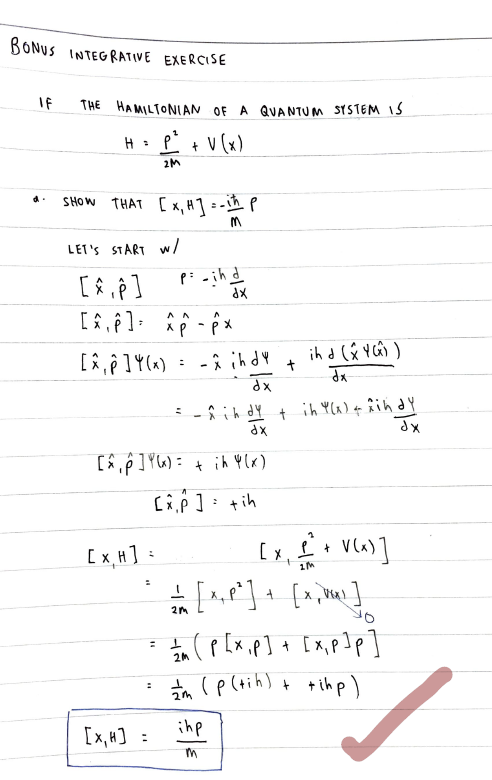 BONUS INTEGRATIVE EXERCISE
IF THE HAMILTONIAN OF A QUANTUM SYSTEM IS
H = p²/2m + V(x)
a. SHOW THAT [x,H] = -iħ/m p
LET'S START w/
[x̂, p̂] p = -iħ d/dx
[x̂, p̂] = x̂p̂ - p̂x
[x̂, p̂]Ψ(x) = -x̂ iħ dΨ/dx + iħ d(x̂Ψ(x̂))/dx
= -x̂ iħ dΨ/dx + iħΨ(x) + x̂iħ dΨ/dx
[x̂, p̂]Ψ(x) = + iħ Ψ(x)
[x̂, p̂] = +iħ
[x,H] = [x, p²/2m + V(x)]
= 1/2m [x, p²] + [x, V(x)] → 0
= 1/2m ( p[x,p] + [x,p]p ]
= 1/2m ( p(+iħ) + +iħp )
[x,H] = iħp/m